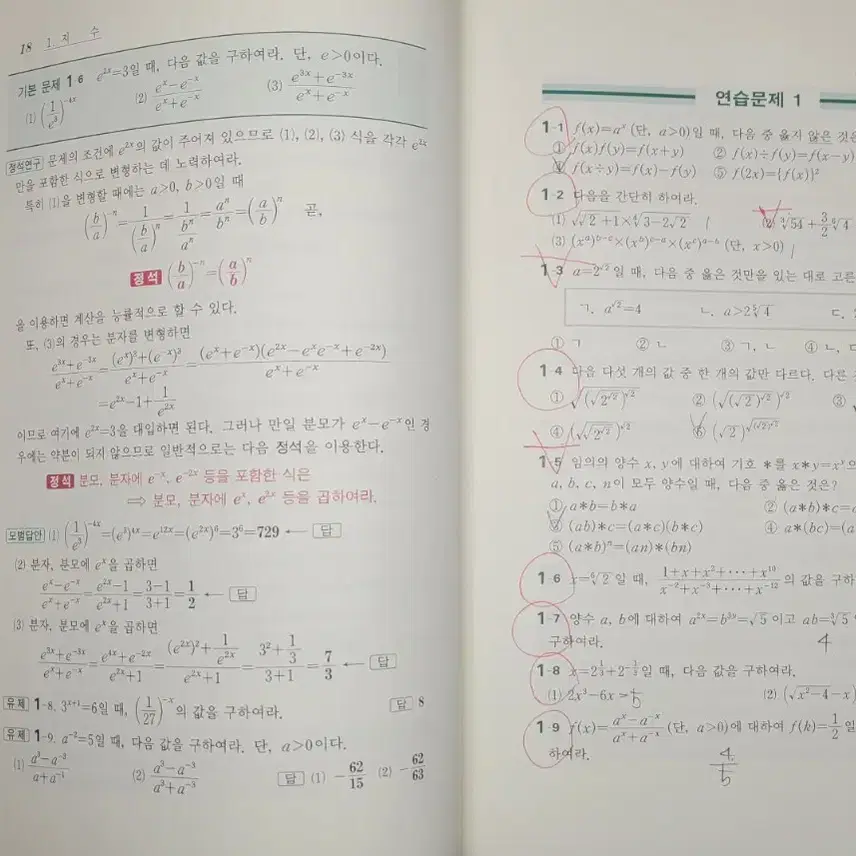 18 1. 지 수
기본 문제 1·6 e^{2x}=3일 때, 다음 값을 구하여라. 단, e>0이다.
(1) (1/e³)^{-4x} (2) (e^x−e^{-x})/(e^x+e^{-x}) (3) (e^{3x}+e^{-3x})/(e^x+e^{-x})
정석연구 문제의 조건에 e^{2x}의 값이 주어져 있으므로 (1), (2), (3) 식을 각각 e^{2x}
만을 포함한 식으로 변형하는 데 노력하여라.
특히 (1)을 변형할 때에는 a>0, b>0일 때
(b/a)^{-n}=1/(b/a)^n=1/(b^n/a^n)=a^n/b^n=(a/b)^n 곧,
정석 (b/a)^{-n}=(a/b)^n
을 이용하면 계산을 능률적으로 할 수 있다.
또, (3)의 경우는 분자를 변형하면
(e^{3x}+e^{-3x})/(e^x+e^{-x})=((e^x)³+(e^{-x})³)/(e^x+e^{-x})=(e^x+e^{-x})(e^{2x}−e^xe^{-x}+e^{-2x})/(e^x+e^{-x})
=e^{2x}−1+1/e^{2x}
이므로 여기에 e^{2x}=3을 대입하면 된다. 그러나 만일 분모가 e^x−e^{-x}인 경
우에는 약분이 되지 않으므로 일반적으로는 다음 정석을 이용한다.
정석 분모, 분자에 e^{-x}, e^{-2x} 등을 포함한 식은
⇒ 분모, 분자에 e^x, e^{2x} 등을 곱하여라.
모범답안 (1) (1/e³)^{-4x}=(e³)^{4x}=e^{12x}=(e^{2x})^6=3^6=729 ← 답
(2) 분자, 분모에 e^x을 곱하면
(e^x−e^{-x})/(e^x+e^{-x})=(e^{2x}−1)/(e^{2x}+1)=(3−1)/(3+1)=1/2 ← 답
(3) 분자, 분모에 e^x을 곱하면
(e^{3x}+e^{-3x})/(e^x+e^{-x})=(e^{4x}+e^{-2x})/(e^{2x}+1)=((e^{2x})²+1/e^{2x})/(e^{2x}+1)=(3²+1/3)/(3+1)=7/3 ← 답
유제 1-8. 3^{x+1}=6일 때, (1/27)^{-x}의 값을 구하여라. 답 8
유제 1-9. a^{-2}=5일 때, 다음 값을 구하여라. 단, a>0이다.
(1) (a³−a^{-3})/(a+a^{-1}) (2) (a³−a^{-3})/(a³+a^{-3}) 답 (1) −62/15 (2) −62/63
연습문제 1
1-1 f(x)=a^x (단, a>0)일 때, 다음 중 옳지 않은 것은
① f(x)f(y)=f(x+y) ② f(x)÷f(y)=f(x−y)
④ f(x÷y)=f(x)−f(y) ⑤ f(2x)={f(x)}²
1-2 다음을 간단히 하여라.
(1) √(√2+1)×⁴√(3−2√2) 1 (2) ³√54+3/2 ⁶√4
(3) (x^a)^{b−c}×(x^b)^{c−a}×(x^c)^{a−b} (단, x>0) 1
1-3 a=2^{√2}일 때, 다음 중 옳은 것만을 있는 대로 고른
ㄱ. a^{√2}=4 ㄴ. a>2⁵√4 ㄷ.
① ㄱ ② ㄴ ③ ㄱ, ㄴ ④ ㄴ, ㄷ
1-4 다음 다섯 개의 값 중 한 개의 값만 다르다. 다른
① √((√2^{√2})^{√2}) ② (√((√2)^{√2}))^{√2} ③
④ (√(√2^{√2}))^{√2} ⑤ (√2)^{√((√2)^{√2})}
1-5 임의의 양수 x, y에 대하여 기호 *를 x*y=x^y으
a, b, c, n이 모두 양수일 때, 다음 중 옳은 것은?
① a*b=b*a ② (a*b)*c=
③ (ab)*c=(a*c)(b*c) ④ a*(bc)=(a
⑤ (a*b)^n=(an)*(bn)
1-6 x=⁶√2일 때, (1+x+x²+···+x^{10})/(x^{-2}+x^{-3}+···+x^{-12})의 값을 구하
1-7 양수 a, b에 대하여 a^{2x}=b^{3y}=√5이고 ab=³√5
구하여라. 4
1-8 x=2^{1/3}+2^{-1/3}일 때, 다음 값을 구하여라.
(1) 2x³−6x 5 (2) (√(x²−4)−x)
1-9 f(x)=(a^x−a^{-x})/(a^x+a^{-x}) (단, a>0)에 대하여 f(k)=1/2일
하여라. 4/5